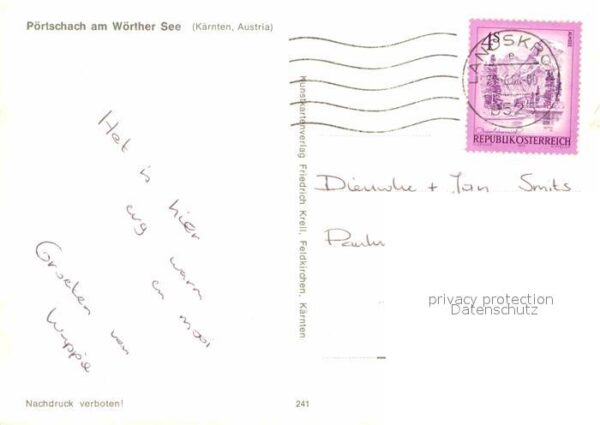 Pörtschach am Wörther See (Kärnten, Austria)
Het is hier
erg warm
en mooi
Groeten van
Kunstkartenverlag Friedrich Krell, Feldkirchen, Kärnten
4S
ALMSEE
LANDSKRO
952
REPUBLIK ÖSTERREICH
+ Jan Smits
privacy protection
Datenschutz
Nachdruck verboten!
241